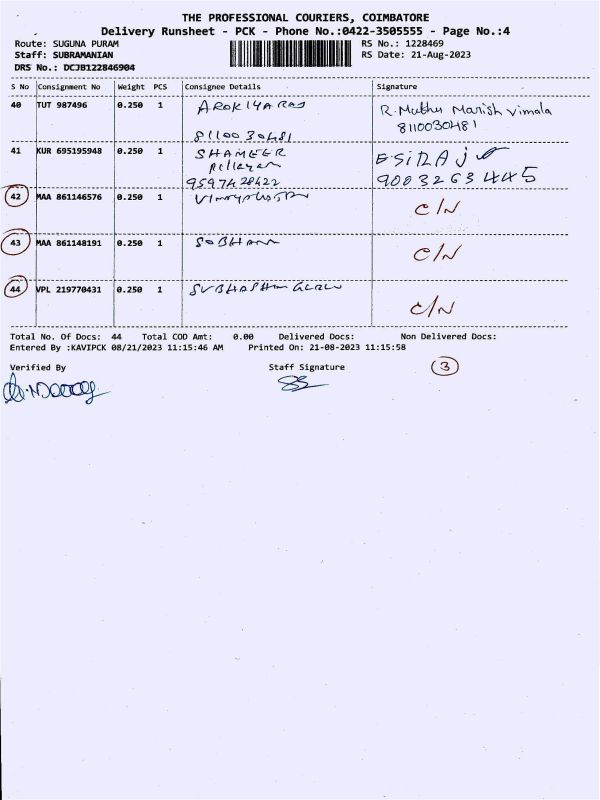 THE PROFESSIONAL COURIERS, COIMBATORE
Delivery Runsheet - PCK - Phone No.:0422-3505555 - Page No.:4
Route: SUGUNA PURAM RS No.: 1228469
Staff: SUBRAMANIAN RS Date: 21-Aug-2023
DRS No.: DCJB122846904
S No Consignment No Weight PCS Consignee Details Signature
40 TUT 987496 0.250 1 AROKIYA RAJ R. Muthu Marish Vimala
8110030481 8110030481
41 KUR 695195948 0.250 1 SHAMEER ESIRAJ
9597428422 9003263445
42 MAA 861146576 0.250 1 C/N
43 MAA 861148191 0.250 1 SOBHANA C/N
44 VPL 219770431 0.250 1 C/N
Total No. Of Docs: 44 Total COD Amt: 0.00 Delivered Docs: Non Delivered Docs:
Entered By :KAVIPCK 08/21/2023 11:15:46 AM Printed On: 21-08-2023 11:15:58
Verified By Staff Signature 3